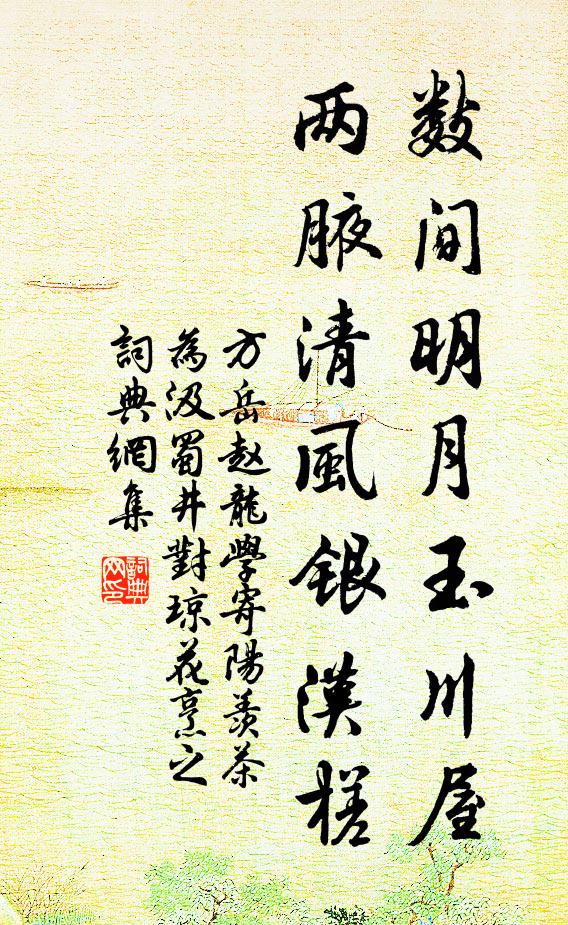 数间明月玉川屋
两腋清風银漢槎
方岳赵龍學寄陽羨茶
為汲蜀井對琼花烹之
詞典網集
詞典
网印